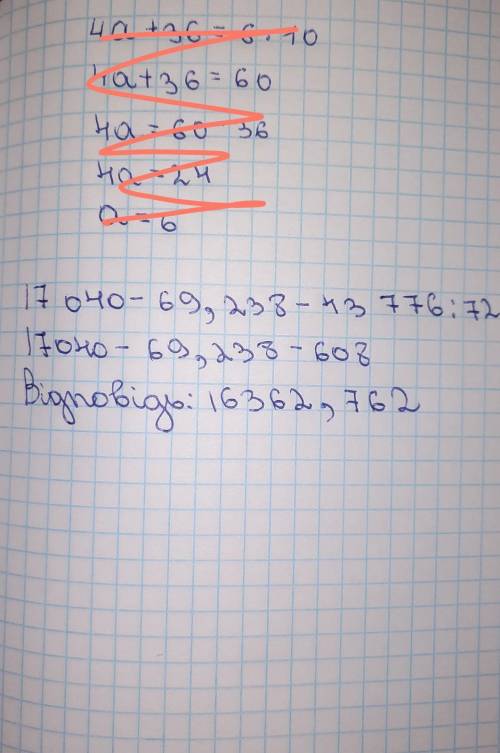 4a + 36 = 6 · 10
4a + 36 = 60
4a = 60 - 36
4a = 24
a = 6
17 040 - 69,238 - 43 776 : 72
17040 - 69,238 - 608
Відповідь: 16362,762